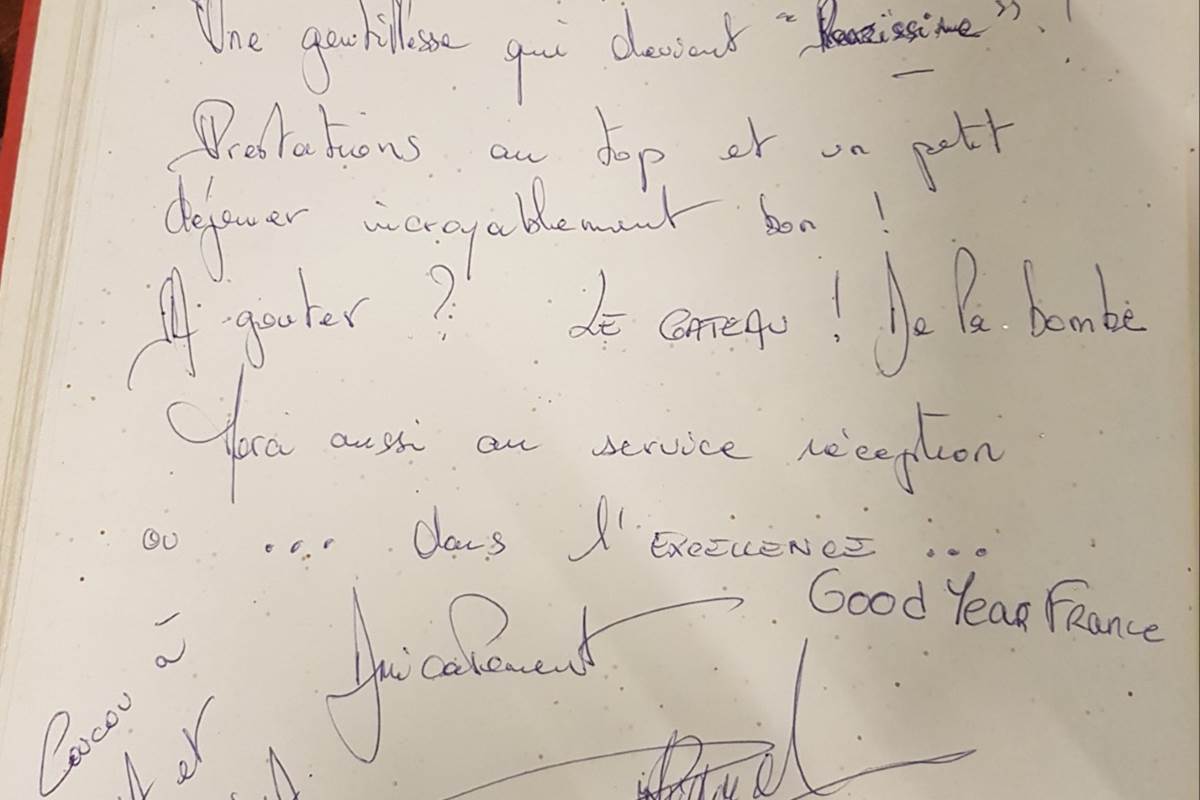 Une gentillesse qui devient "Rarissime" !
Prestations au top et un petit
déjeuner incroyablement bon !
A gouter ? LE GATEAU ! De la bombe
aussi au service réception
ou ... dans l'EXCELLENCE ...
Good Year France
Amicalement
Coucou à
et